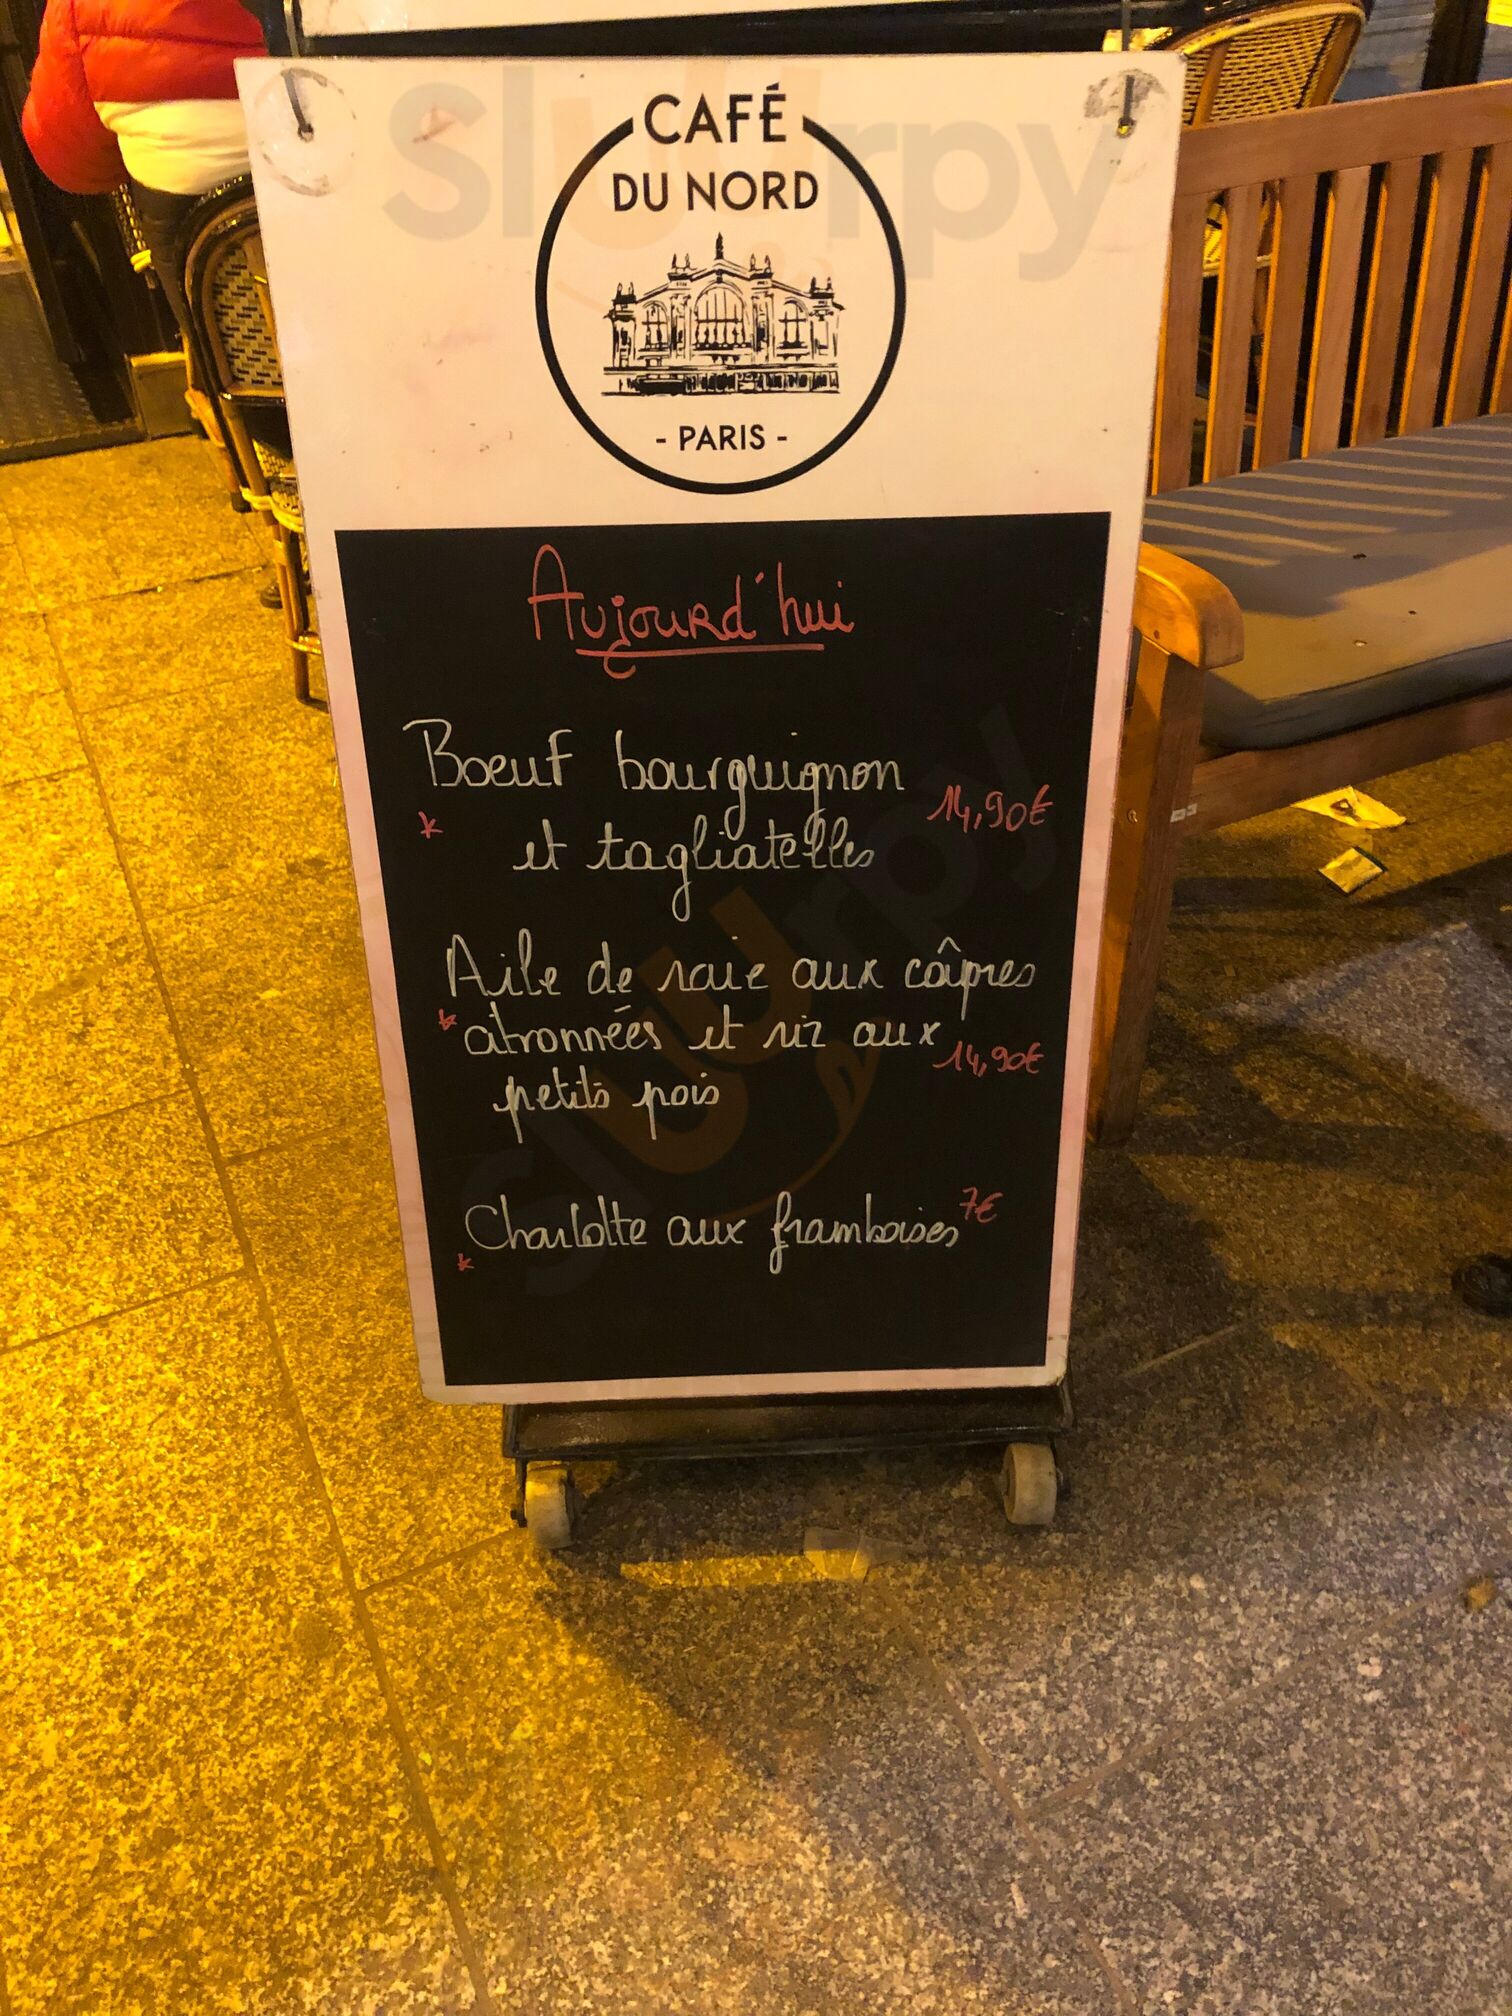 CAFÉ
DU NORD
- PARIS -
Aujourd'hui
Boeuf bourguignon
et tagliatelles 14,90€
Aile de raie aux câpres
* citronnées et riz aux 14,90€
petits pois
* Charlotte aux framboises 7€
Sluurpy
Sluurpy